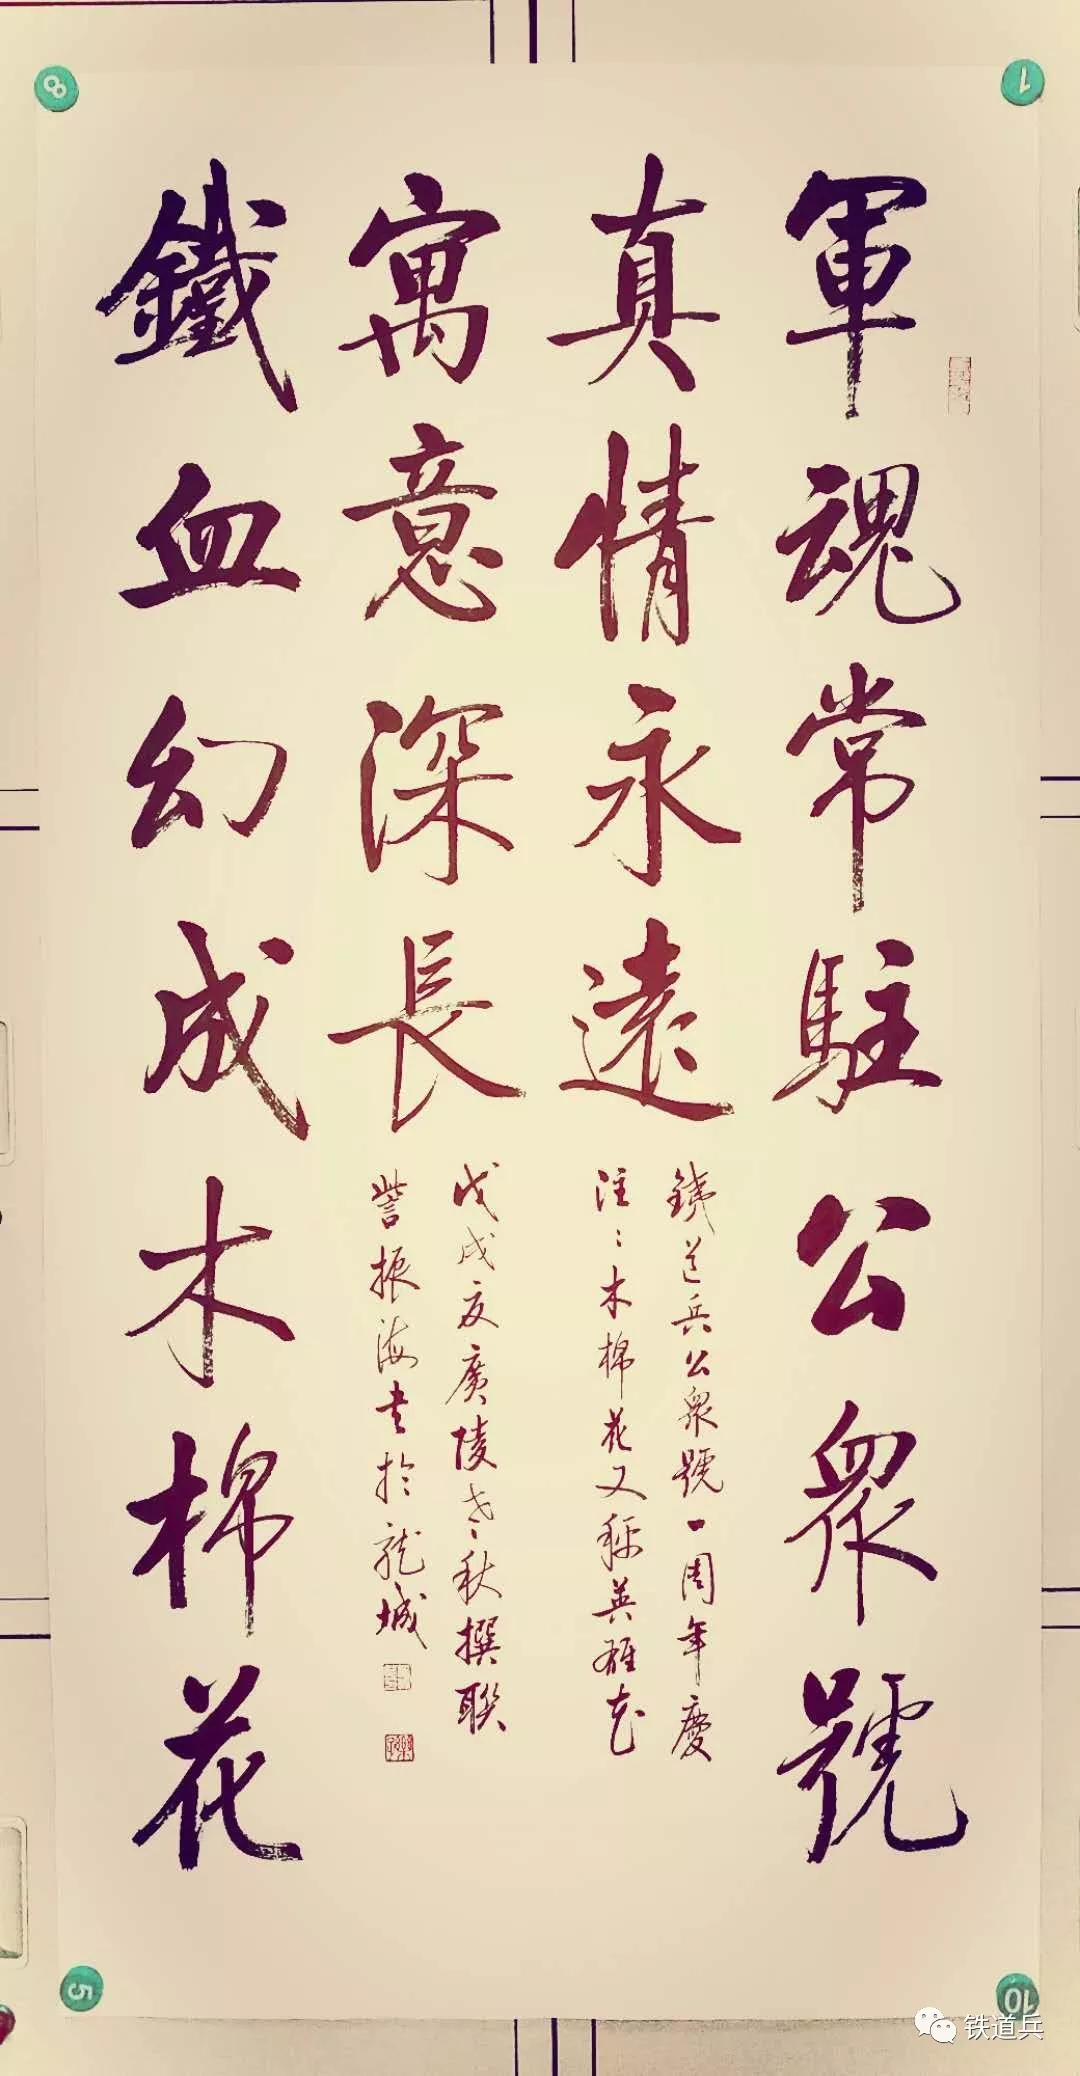 軍魂常駐公眾號
真情永遠
銕道兵公眾號一周年慶
注：木棉花又稱英雄花
寓意深長
戊戌夏廣陵老秋撰聯
訾振海书於龍城
鐵血幻成木棉花
8
1
5
10
铁道兵